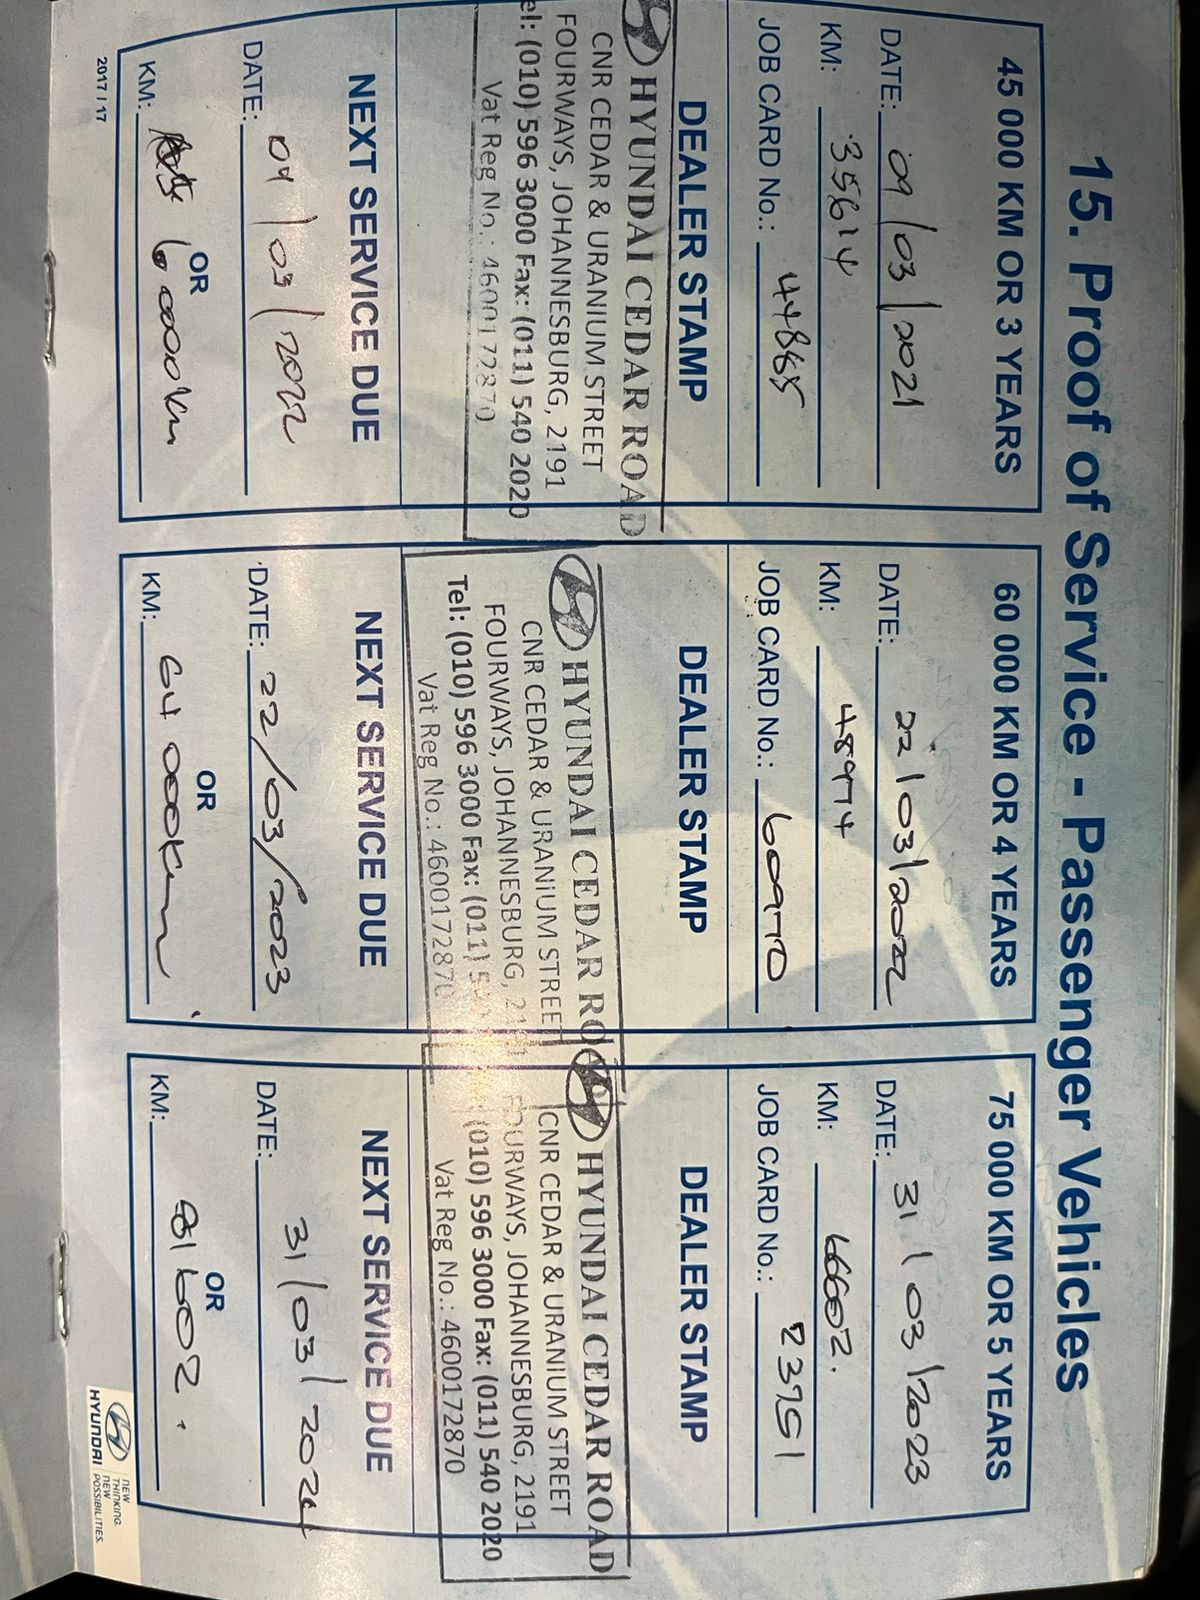 15. Proof of Service - Passenger Vehicles
45 000 KM OR 3 YEARS
DATE: 09/03/2021
KM: 35614
JOB CARD No.: 44885
DEALER STAMP
HYUNDAI CEDAR ROAD
CNR CEDAR & URANIUM STREET
FOURWAYS, JOHANNESBURG, 2191
el: (010) 596 3000 Fax: (011) 540 2020
Vat Reg No.: 4600172870
NEXT SERVICE DUE
DATE: 09/03/2022
OR
KM: 60000km
2017 / 17
60 000 KM OR 4 YEARS
DATE: 22/03/2022
KM: 48974
JOB CARD No.: 60970
DEALER STAMP
HYUNDAI CEDAR RO
CNR CEDAR & URANIUM STREE
FOURWAYS, JOHANNESBURG, 21
Tel: (010) 596 3000 Fax: (011) 5
Vat Reg No.: 4600172870
NEXT SERVICE DUE
DATE: 22/03/2023
OR
KM: 64000km
75 000 KM OR 5 YEARS
DATE: 31/03/2023
KM: 66602.
JOB CARD No.: 23751
DEALER STAMP
HYUNDAI CEDAR ROAD
CNR CEDAR & URANIUM STREET
FOURWAYS, JOHANNESBURG, 2191
: (010) 596 3000 Fax: (011) 540 2020
Vat Reg No.: 4600172870
NEXT SERVICE DUE
DATE: 31/03/2024
OR
KM: 81602.
HYUNDAI
NEW
THINKING.
NEW
POSSIBILITIES.